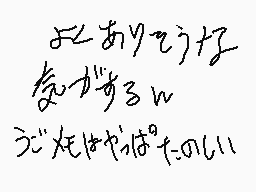 よくありそうな
気がするw
うごメモはやっぱたのしい